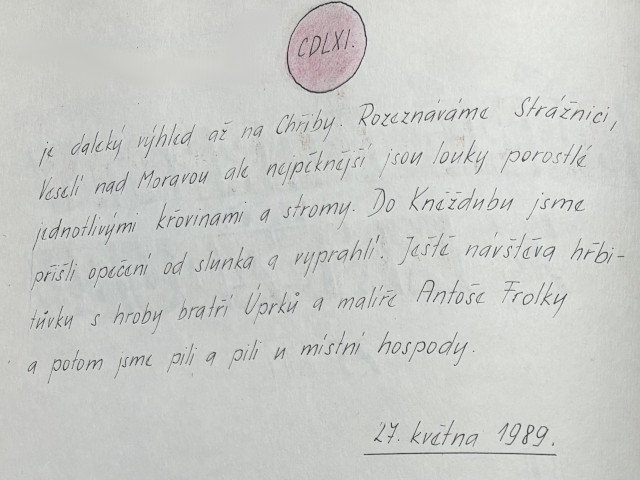 CDLXI.
je daleký výhled až na Chřiby. Rozeznáváme Strážnici,
Veselí nad Moravou ale nejpěknější jsou louky porostlé
jednotlivými křovinami a stromy. Do Kněždubu jsme
přišli opečení od slunka a vyprahlí. Ještě návštěva hřbi-
tůvku s hroby bratří Úprků a malíře Antoše Frolky
a potom jsme pili a pili u místní hospody.
27. května 1989.